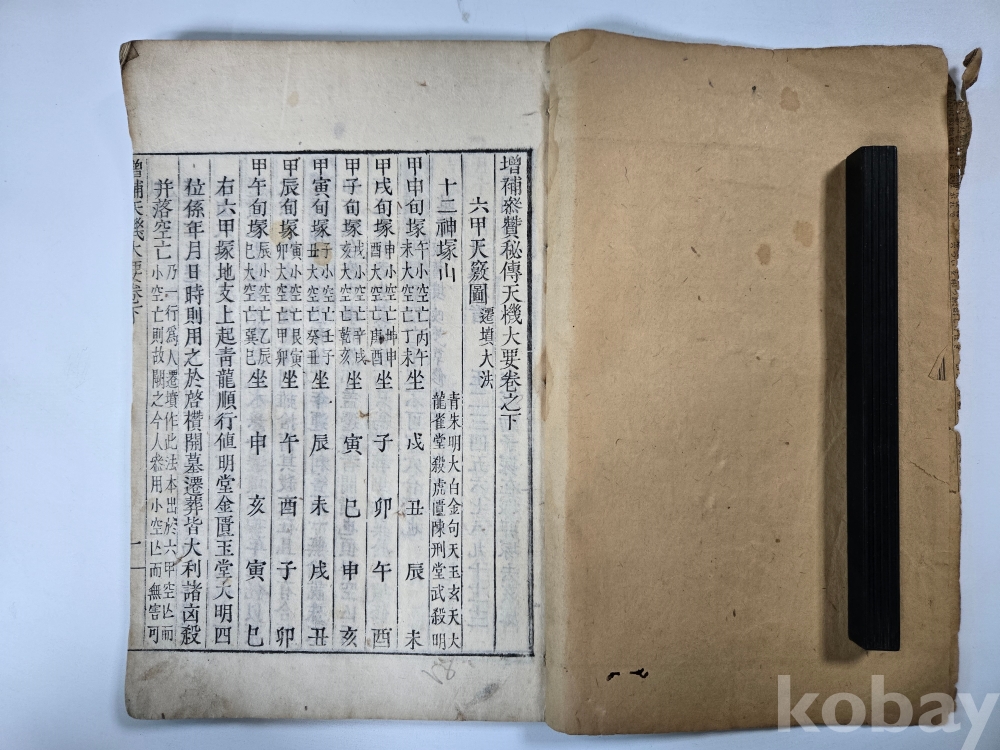 增補叅賛秘傳天機大要卷之下
六甲天竅圖 遷墳大法
十二神塚山 青朱明大白金句天玉玄天大
龍雀堂殺虎匱陳刑堂武殺明
甲申旬塚 午小空亡丙午 未大空亡丁未 坐 戌 丑 辰 未
甲戌旬塚 申小空亡坤申 酉大空亡庚酉 坐 子 卯 午 酉
甲子旬塚 戌小空亡辛戌 亥大空亡乾亥 坐 寅 巳 申 亥
甲寅旬塚 子小空亡壬子 丑大空亡癸丑 坐 辰 未 戌 丑
甲辰旬塚 寅小空亡艮寅 卯大空亡甲卯 坐 午 酉 子 卯
甲午旬塚 辰小空亡乙辰 巳大空亡巽巳 坐 申 亥 寅 巳
右六甲塚地支上起靑龍順行値明堂金匱玉堂大明四
位係年月日時則用之於啓欑開墓遷葬皆大利諸凶殺
并落空亡 乃一行爲人遷墳作此法本出於六甲空亡而
小空亡則故闕之今人叅用小空亡而無害可
增補天機大要卷之下
一
kobay